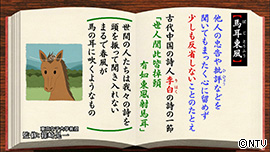 【馬耳東風】
他人の忠告や批評などを
聞いてもまったく心に留めず
少しも反省しないことのたとえ
古代中国の詩人李白の詩の一節
「世人聞此皆掉頭
有如東風射馬耳」
世間の人たちは我々の詩を
頭を振って聞き入れない
まるで春風が
馬の耳に吹くようなもの
©NTV